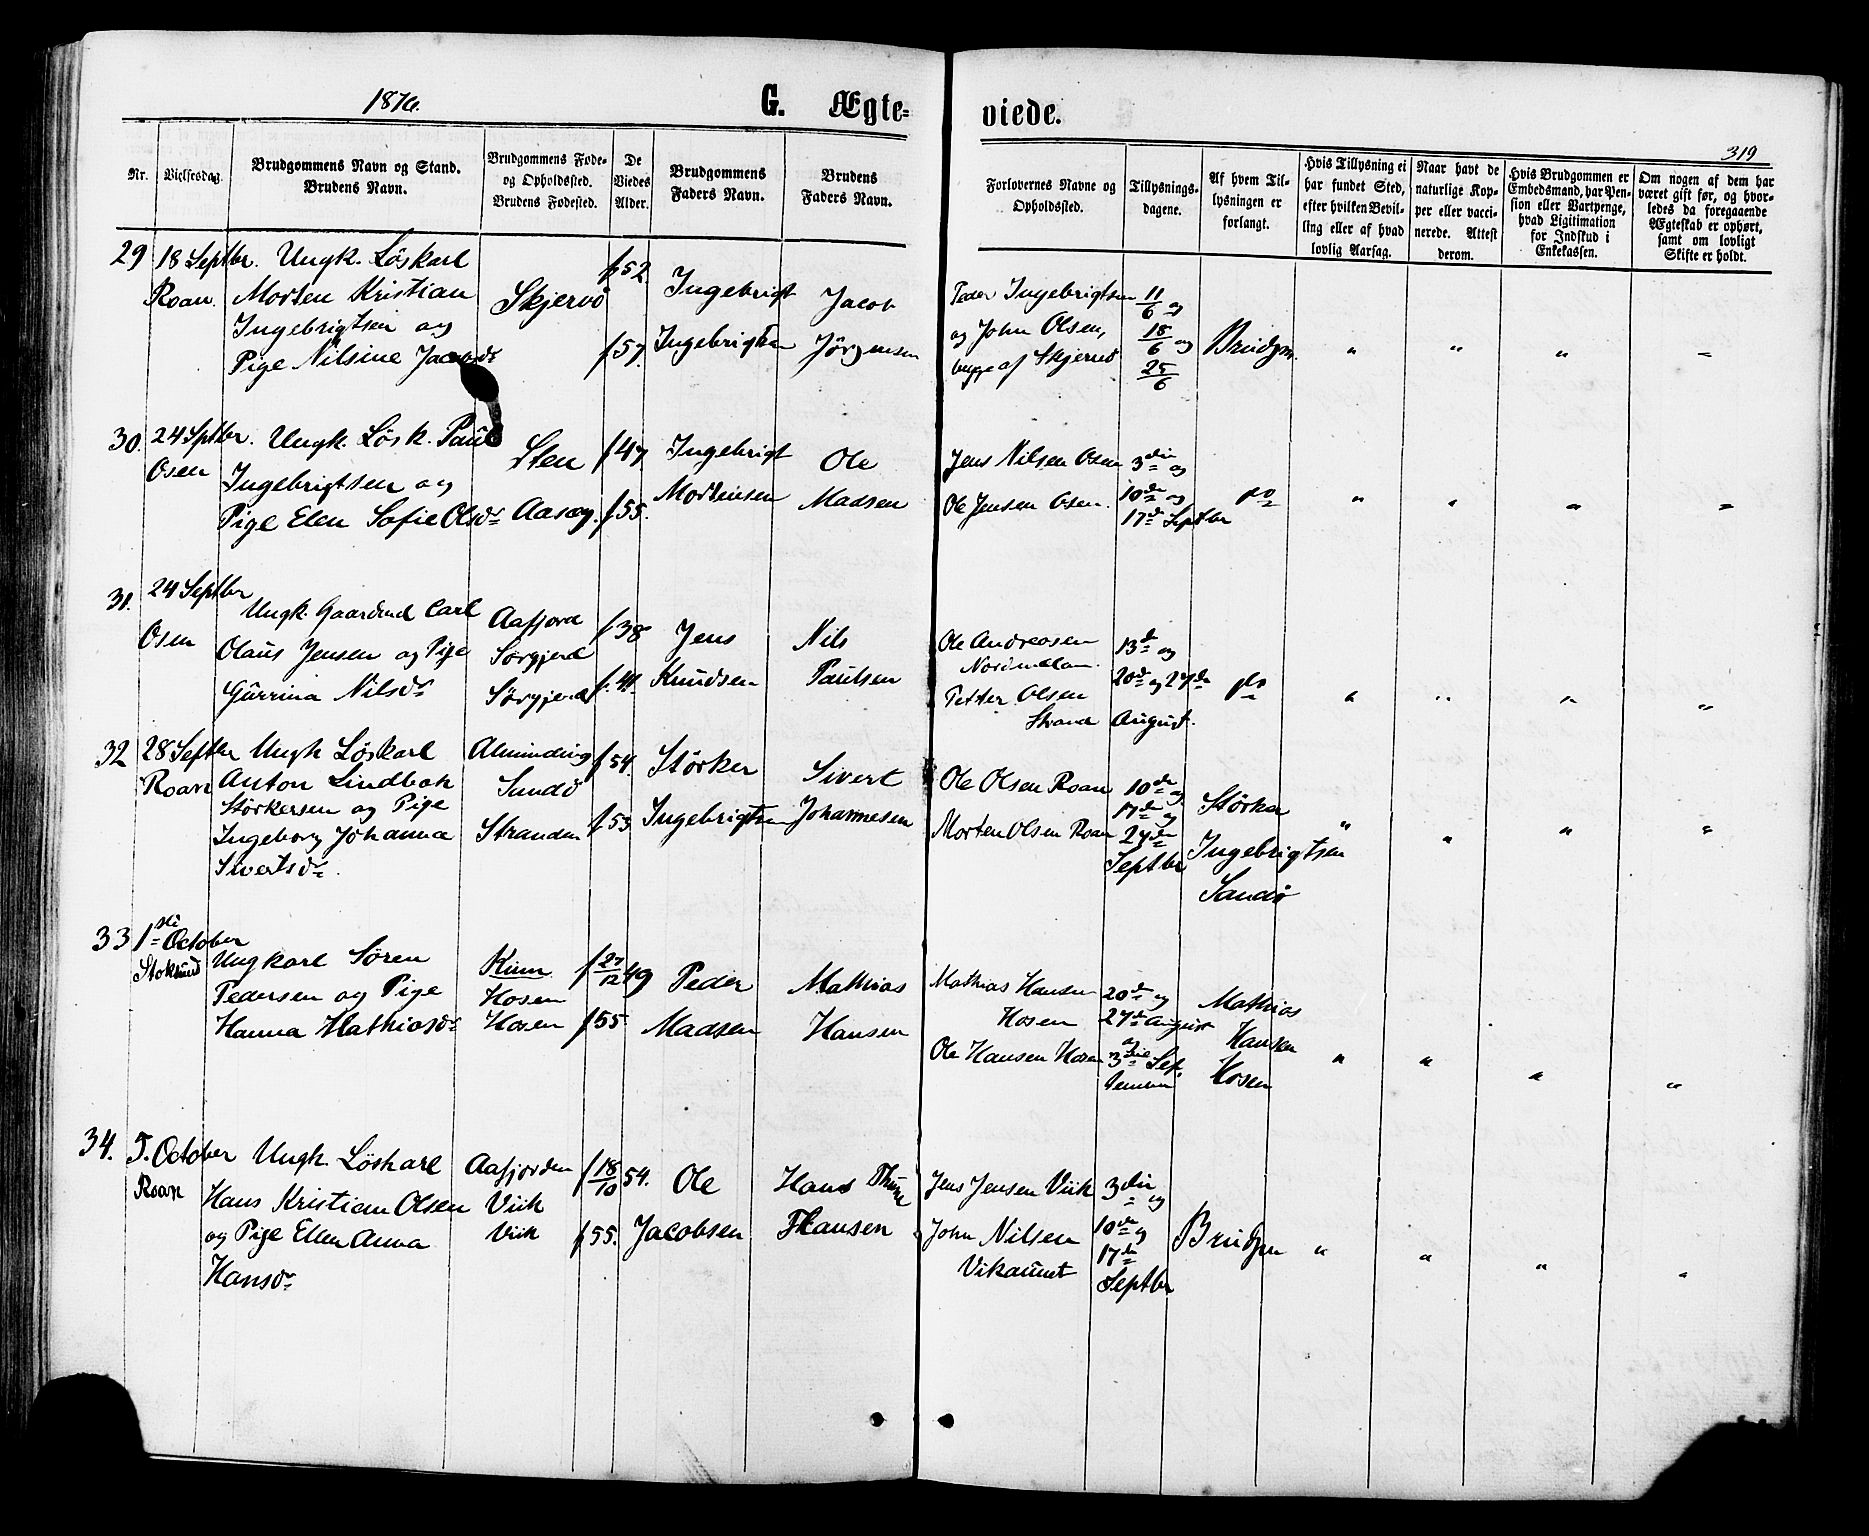 1876.
G. Ægte-
viede.
319
Nr.
Vielsesdag.
Brudgommens Navn og Stand.
Brudens Navn.
Brudgommens Føde-
og Opholdssted.
Brudens Fødested.
De
Viedes
Alder.
Brudgommens
Faders Navn.
Brudens
Faders Navn.
Forlovernes Navne og
Opholdssted.
Tillysnings-
dagene.
Af hvem Til-
lysningen er
forlangt.
Hvis Tillysning ei
har fundet Sted,
efter hvilken Bevil-
ling eller af hvad
lovlig Aarsag.
Naar havt de
naturlige Kop-
per eller vacci-
nerede. Attest
derom.
Hvis Brudgommen er
Embedsmand, har Pen-
sion eller Vartpenge,
hvad Ligitimation
for Indskud i
Enkekassen.
Om nogen af dem har
været gift før, og hvor-
ledes da foregaaende
Ægteskab er ophørt,
samt om lovligt
Skifte er holdt.
29
18 Septbr.
Roan.
Ungk. Löskarl
Morten Kristian
Ingebrigtsen og
Pige Nilsine Jacobsdr
Skjervö
f 52.
f 57.
Ingebrigt
Ingebrigtsen
Jacob
Jörgensen
Peder Ingebrigtsen
og John Olsen,
begge af Skjervö
11/6 og
18/6 og
25/6
Brudgm.
" " " "
30.
24 Septbr.
Osen
Ungk. Lösk. Paul
Ingebrigtsen og
Pige Elen Sofie Olsdr
Sten
Aasæg.
f 47
f 55.
Ingebrigt
Mortensen
Ole
Madsen
Jens Nilsen Osen
Ole Jensen Osen.
3die og
10de og
17de Septbr
do
" " " "
31.
24 Septbr
Osen
Ungk. Gaardmd Carl
Olaus Jensen og Pige
Gurrina Nilsdr
Aafjord
Sörgjerd
Sörgjerd
f 38
f. 41.
Jens
Knudsen
Nils
Paulsen
Ole Andreasen
Nordmelan.
Petter Olsen
Strand
13de og
20de og 27de
August.
do
" " " "
32
28 Septbr
Roan
Ungk Löskarl
Anton Lindbak
Störkersen og Pige
Ingeborg Johanna
Sivertsdr.
Alminding
Sandö
Stranden
f 54.
f 53
Störker
Ingebrigtsen
Sivert
Johannesen
Ole Olsen Roan
Morten Olsen Roan
10de og
17de og
24de
Septbr
Störker
Ingebrigtsen
Sandö
" " " "
33
1ste October
Stoksund
Ungkarl Sören
Pedersen og Pige
Hanna Mathiasdr
Kinn
Hosen
Hosen
f 27/12 49
f 55
Peder
Madsen
Mathias
Hansen
Mathias Hansen
Hosen
Ole Hansen Hosen
20de og
27de August
og
3die Sep-
tember
Mathias
Hansen
Hosen
" " " "
34.
5. October
Roan
Ungk. Löskarl
Hans Kristian Olsen
og Pige Ellen Anna
Hansdr
Aafjorden
Viik
Viik
f 18/10 54.
f 55.
Ole
Jacobsen
Hans
Hansen
Jens Jensen Viik
John Nilsen
Vikaunet
3die og
10de og
17de
Septbr
Brudgm
" " " "